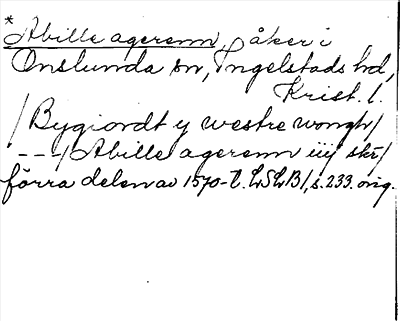 *Abille agerenn, åker i
Onslunda sn, Ingelstads hd,
Krist. l.
/Bygiordt y westre wongh/
---/Abille agerenn iiij skr/
förra delen av 1570-t. LSLB1, s. 233. orig.